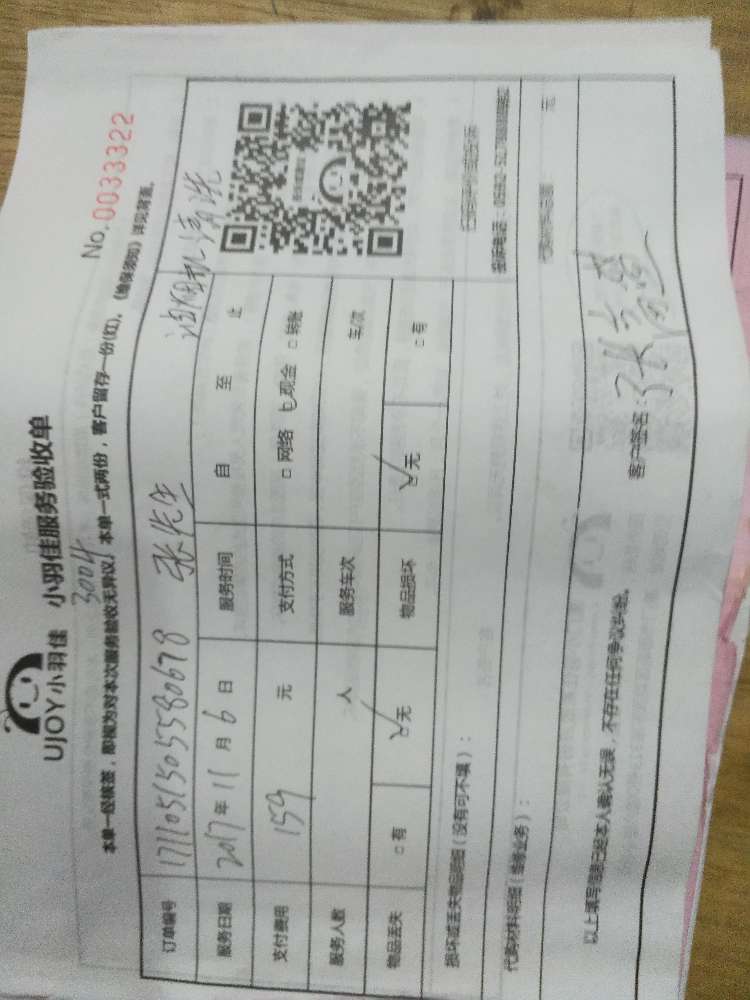 UJOY小羽佳 小羽佳服务验收单
No.0033322
3004
本单一经核签，即视为对本次服务验收无异议。本单一式两份，客户留存一份(红)。《维保须知》详见背面。
订单编号 1711051505580678 张先生 油烟机清洗
服务日期 2017年11月6日 服务时间 自 至 止
支付费用 159 元 支付方式 □网络 ☑现金 □转账
服务人数 人 服务车次 车/次
物品丢失 □有 ☑无 物品损坏 ☑无 □有
损坏或丢失物品明细(没有可不填)：
代购材料明细(维修业务)：
元
以上填写信息已经本人确认无误，不存在任何争议纠纷。
客户签名：